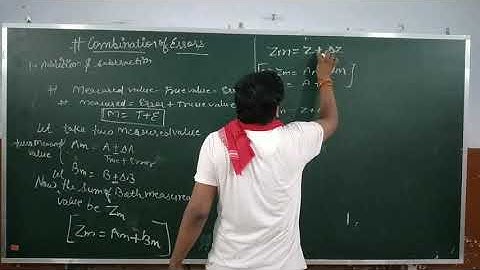 # Combination of Errors
1. Addition & subtraction
Measured value - True value = Erro
measured = Error + True value
M = T + E
Let take two measured value
two measured value
Am = A ± ΔA
True + Error
Let
Bm = B ± ΔB
Now the sum of Both measured
value be Zm
[Zm = Am + Bm]
Zm = Z ± ΔZ